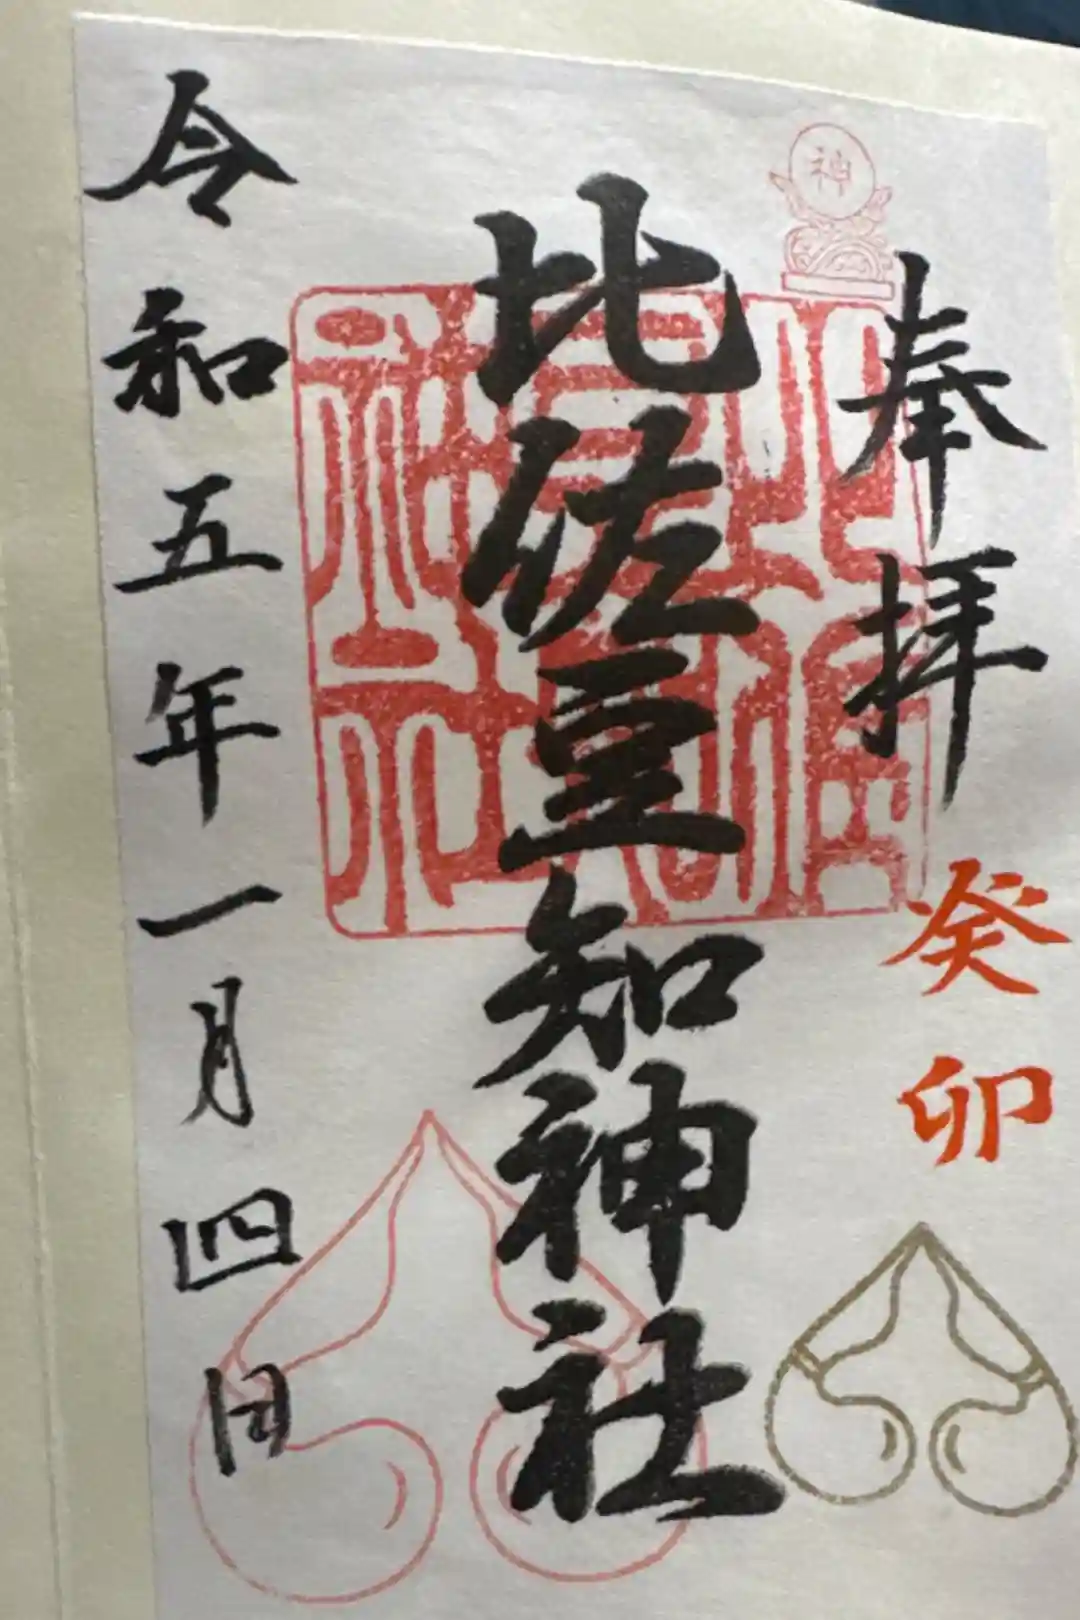 奉拝
癸卯
神
比佐豆知神社
令和五年一月四日